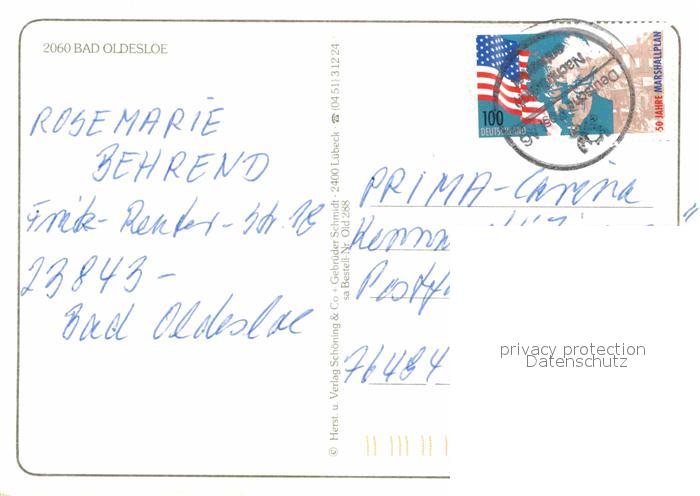 2060 BAD OLDESLOE
ROSEMARIE
BEHREND
Fritz-Reuter-Str. 18
23843-
Bad Oldesloe
© Herst. u. Verlag Schöning & Co + Gebrüder Schmidt · 2400 Lübeck · ☎ (04 51) 3 12 24
sa Bestell-Nr. Old 288
100
DEUTSCHLAND
50 JAHRE MARSHALLPLAN
Deutsche
PRIMA-Carina
Kenn
Postf
76484
privacy protection
Datenschutz